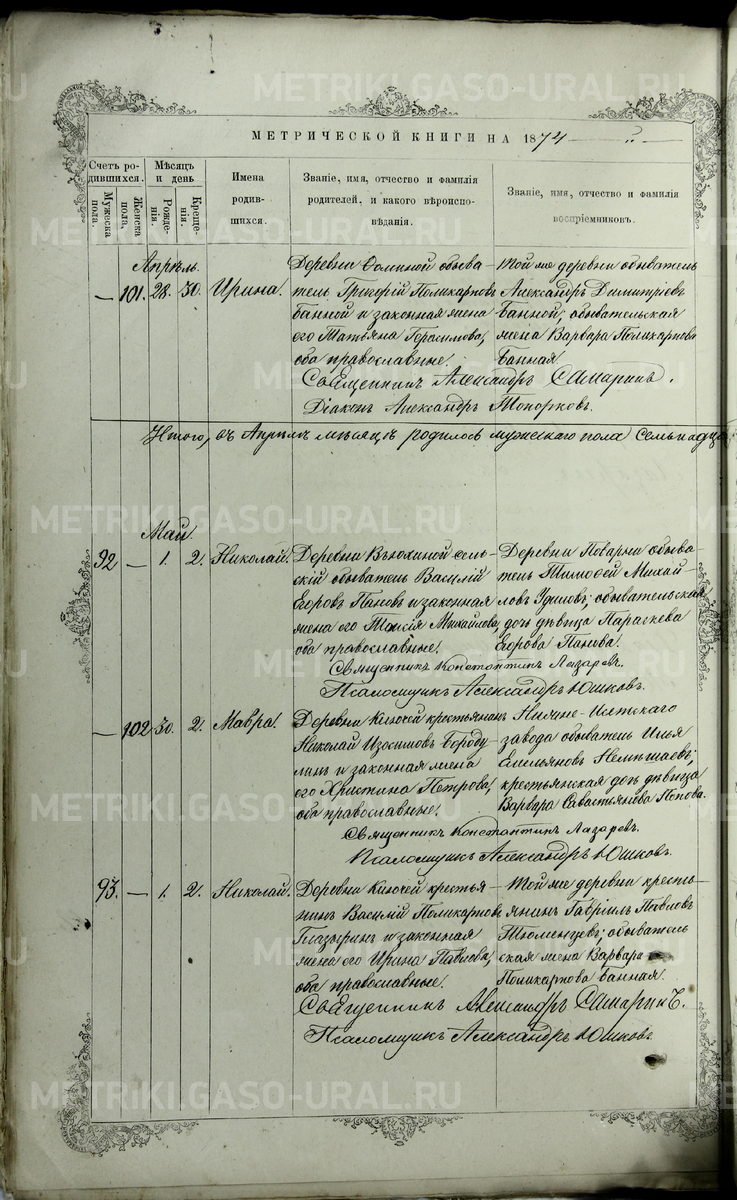 МЕТРИЧЕСКОЙ КНИГИ НА 1874
Счетъ родившихся.
Мужеска пола.
Женска пола.
Мѣсяцъ и день
Рожденія.
Крещенія.
Имена родившихся.
Званіе, имя, отчество и фамилія родителей, и какого вѣроисповѣданія.
Званіе, имя, отчество и фамилія воспріемниковъ.
Апрѣль.
— 101. 28. 30. Ирина.
Деревни Ѳоминой обыва-
тель Григорій Поликарповъ
Банной и законная жена
его Татьяна Герасимова,
оба православные.
Той же деревни обыватель
Александръ Димитріевъ
Банной; обывательская
жена Варвара Поликарпова
Банная
Священникъ Александръ Самаринъ.
Діаконъ Александръ Топорковъ.
Итого, въ Апрѣлѣ мѣсяцѣ родилось мужескаго пола семьнадца
Май.
92 — 1. 2. Николай.
Деревни Вьюхиной сель-
скій обыватель Василій
Егоровъ Пановъ и законная
жена его Таисія Михайлова,
оба православные.
Деревни Поварни обыва-
тель Тимоѳей Михай-
ловъ Удиловъ; обывательская
дочь дѣвица Параскева
Егорова Панова.
Священникъ Константинъ Лазаревъ.
Псаломщикъ Александръ Юшковъ.
— 102 30. 2. Мавра.
Деревни Ключей крестьянинъ
Николай Изосимовъ Бороду
линъ и законная жена
его Христина Петрова,
оба православные.
Нижне-Исетскаго
завода обыватель Илья
Емельяновъ
крестьянская дочь дѣвица
Варвара Савастьянова Попова.
Священникъ Константинъ Лазаревъ.
Псаломщикъ Александръ Юшковъ.
93. — 1. 2. Николай.
Деревни Ключей крестья-
нинъ Василій Поликарповъ
Глазыринъ и законная
жена его Ирина Павлова,
оба православные.
Той же деревни кресть-
янинъ Гавріилъ Павловъ
Тюменцевъ; обыватель
ская жена Варвара
Поликарпова Банная.
Священникъ Александръ Самаринъ.
Псаломщикъ Александръ Юшковъ
METRIKI.GASO-URAL.RU